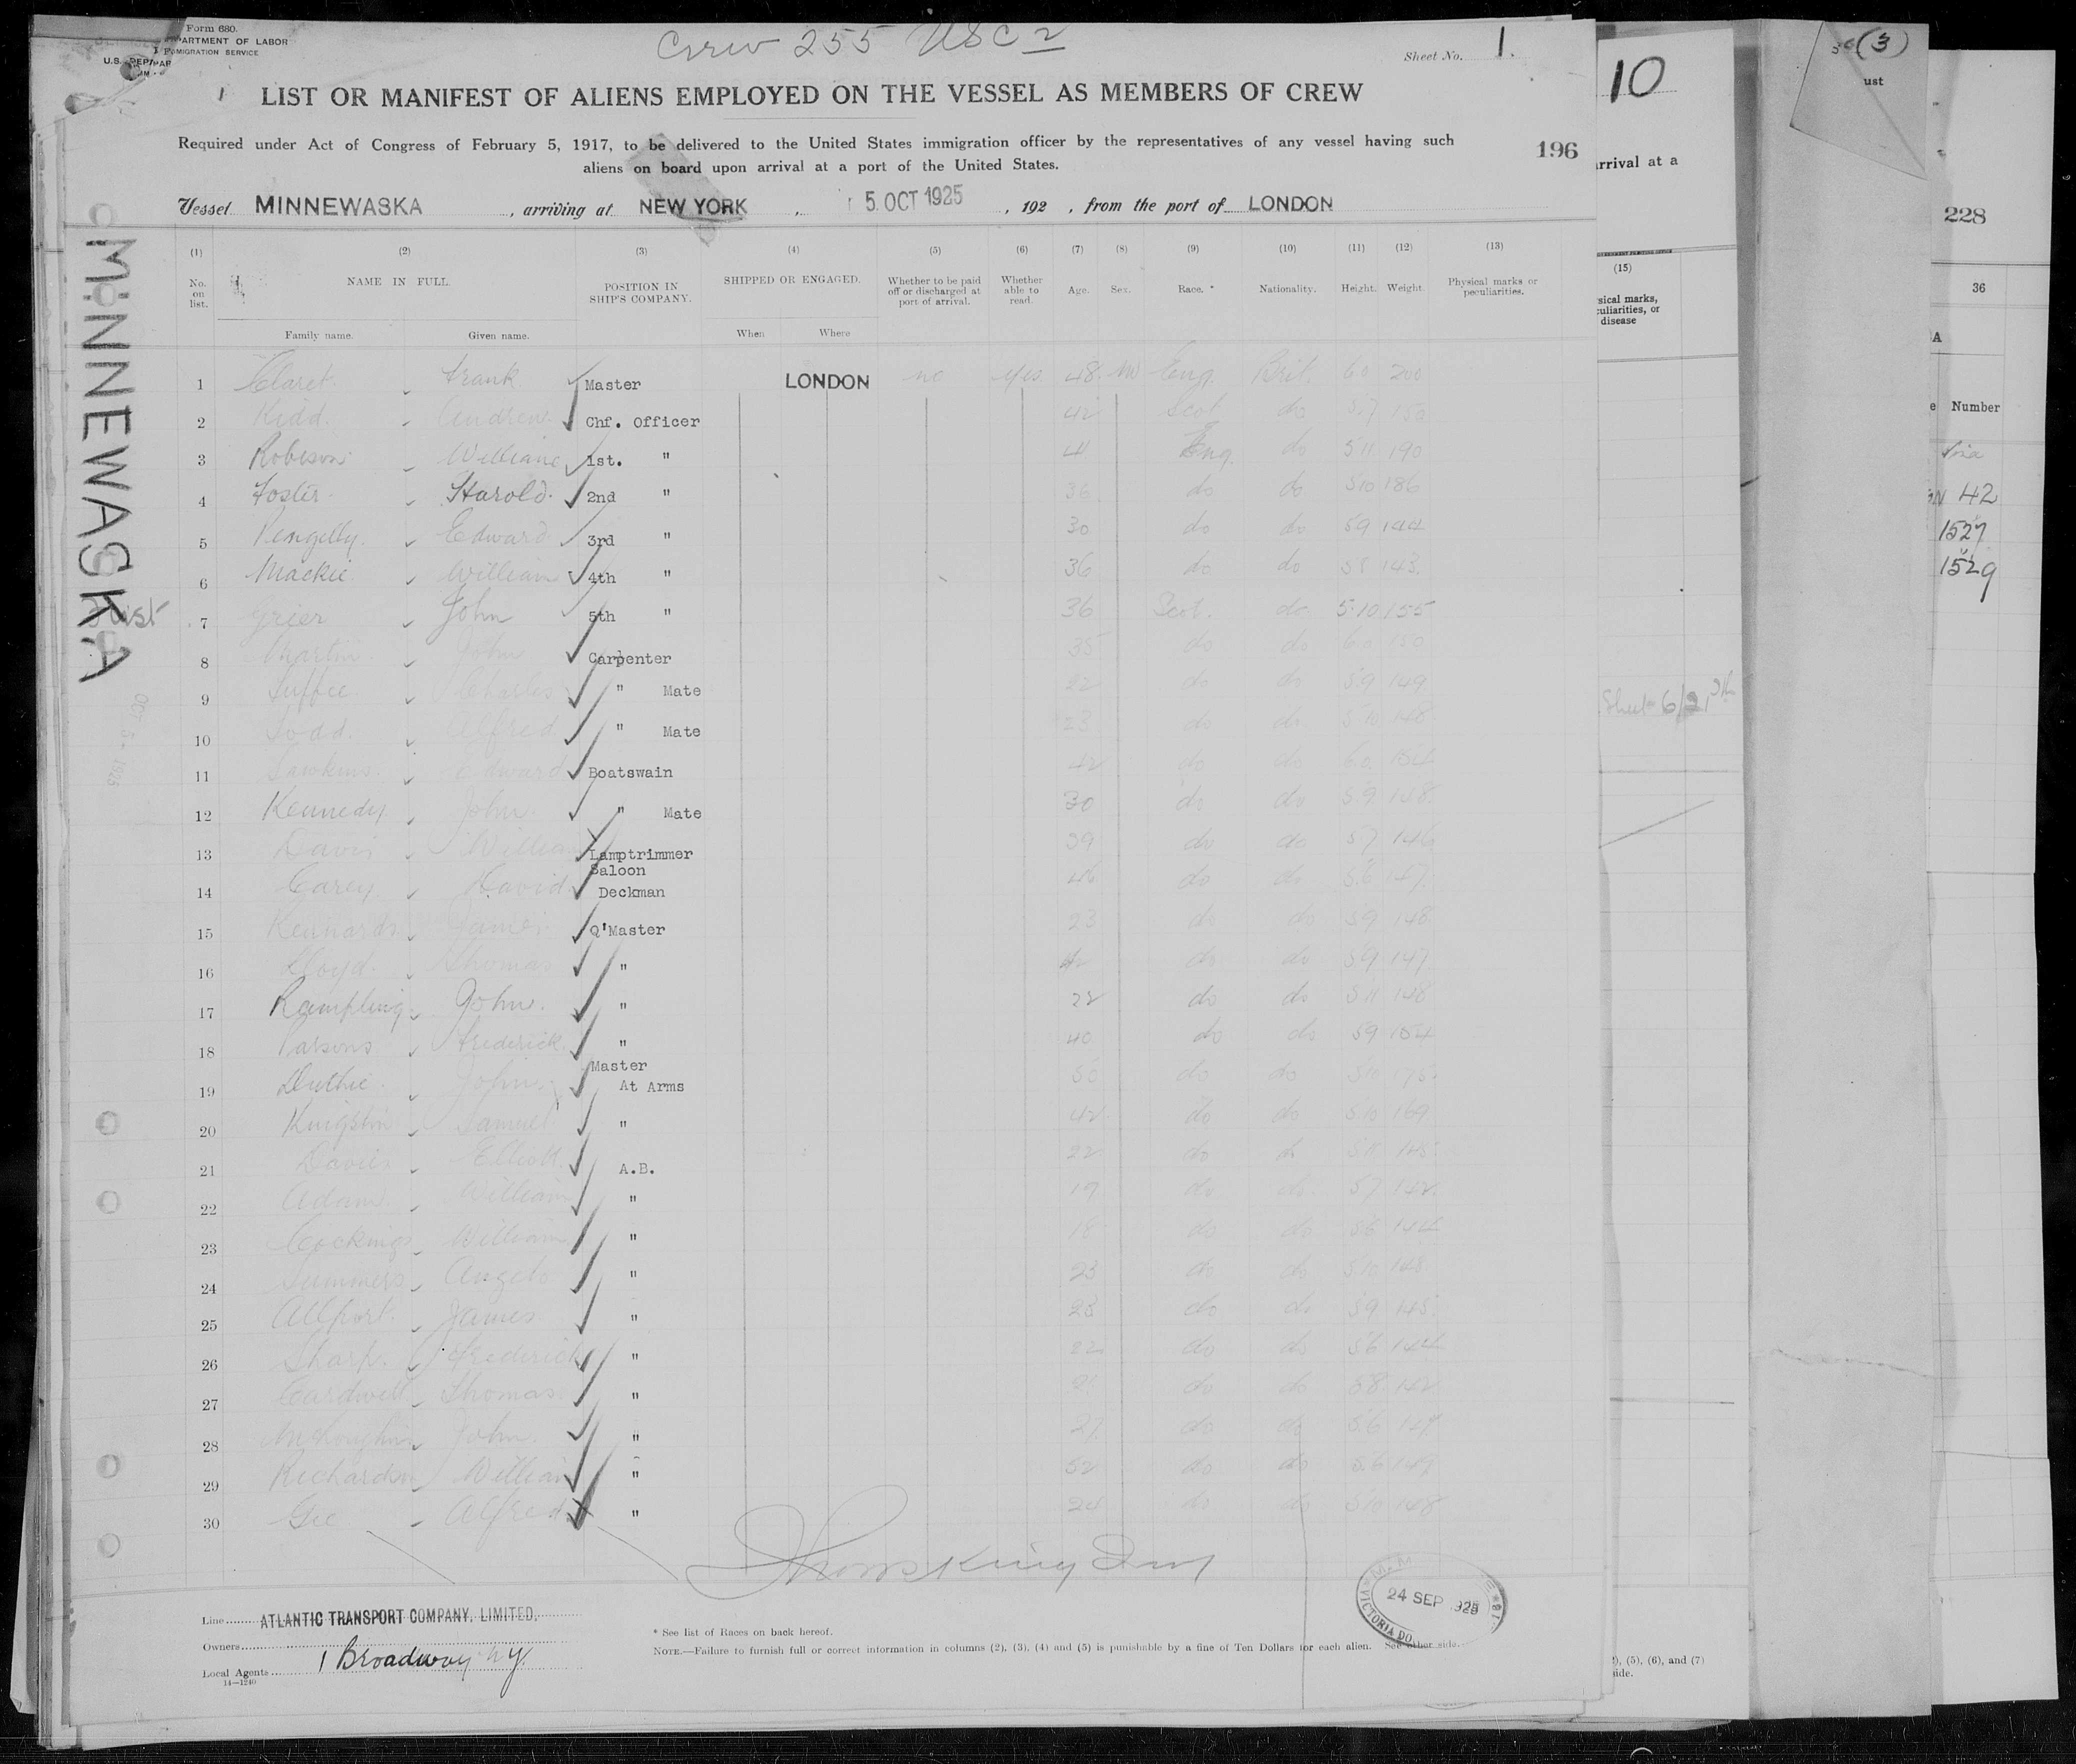 Form 680.
U.S. DEPARTMENT OF LABOR
IMMIGRATION SERVICE
Crew 255 USC 2
Sheet No. 1.
LIST OR MANIFEST OF ALIENS EMPLOYED ON THE VESSEL AS MEMBERS OF CREW
Required under Act of Congress of February 5, 1917, to be delivered to the United States immigration officer by the representatives of any vessel having such
aliens on board upon arrival at a port of the United States.
196
Vessel MINNEWASKA, arriving at NEW YORK, 5 OCT 1925, 192 , from the port of LONDON
MINNEWASKA
(1) (2) (3) (4) (5) (6) (7) (8) (9) (10) (11) (12) (13)
No. on list. NAME IN FULL. POSITION IN SHIP'S COMPANY. SHIPPED OR ENGAGED. Whether to be paid off or discharged at port of arrival. Whether able to read. Age. Sex. Race. * Nationality. Height. Weight. Physical marks or peculiarities.
Family name. Given name. When Where
1 Claret Frank Master LONDON no yes 48 M Eng. Brit. 6 0 200
2 Kidd Andrew Chf. Officer 42 Scot do 5 7 150
3 Robison William 1st. " 41 Eng. do 5 11 190
4 Foster Harold 2nd " 36 do do 5 10 186
5 Pengelly Edward 3rd " 30 do do 5 9 144
6 Mackie William 4th " 36 do do 5 8 143
7 Grier John 5th " 36 Scot. do 5 10 155
8 Martin John Carpenter 35 do do 6 0 150
9 Charles " Mate 22 do do 5 9 149
10 Todd Alfred " Mate 23 do do 5 10 148
11 Edward Boatswain 42 do do 6 0 154
12 Kennedy John " Mate 30 do do 5 9 148
13 Davis William Lamptrimmer 39 do do 5 7 146
14 Carey David Saloon Deckman 46 do do 5 6 147
15 Kennard James Q'Master 23 do do 5 9 148
16 Lloyd Thomas " 42 do do 5 9 147
17 Rampling John " 22 do do 5 11 148
18 Parsons Frederick " 40 do do 5 9 154
19 Duthie John Master At Arms 50 do do 5 11 175
20 Kingston Samuel " 42 do do 5 10 169
21 Davies Elliott A.B. 22 do do 5 11 145
22 Adam William " 19 do do 5 7 142
23 Cockings William " 18 do do 5 6 144
24 Summers Angelo " 23 do do 5 10 148
25 Allport James " 23 do do 5 9 145
26 Sharp Frederick " 22 do do 5 6 144
27 Cardwell Thomas " do do 5 8 142
28 McLoughlin John " 27 do do 5 6 147
29 Richardson William " 52 do do 5 6 149
30 Gee Alfred " 24 do do 5 10 148
24 SEP 1925
VICTORIA DO
Line ATLANTIC TRANSPORT COMPANY, LIMITED,
Owners
Local Agents 1 Broadway N.Y.
14—1240
* See list of Races on back hereof.
NOTE.—Failure to furnish full or correct information in columns (2), (3), (4) and (5) is punishable by a fine of Ten Dollars for each alien. See other side.
OCT 5 1925
10
arrival at a
(15)
sical marks,
culiarities, or
disease
Sheet 6/2
), (5), (6), and (7)
ide.
(3)
ust
228
36
A
e Number
42
1527
1529